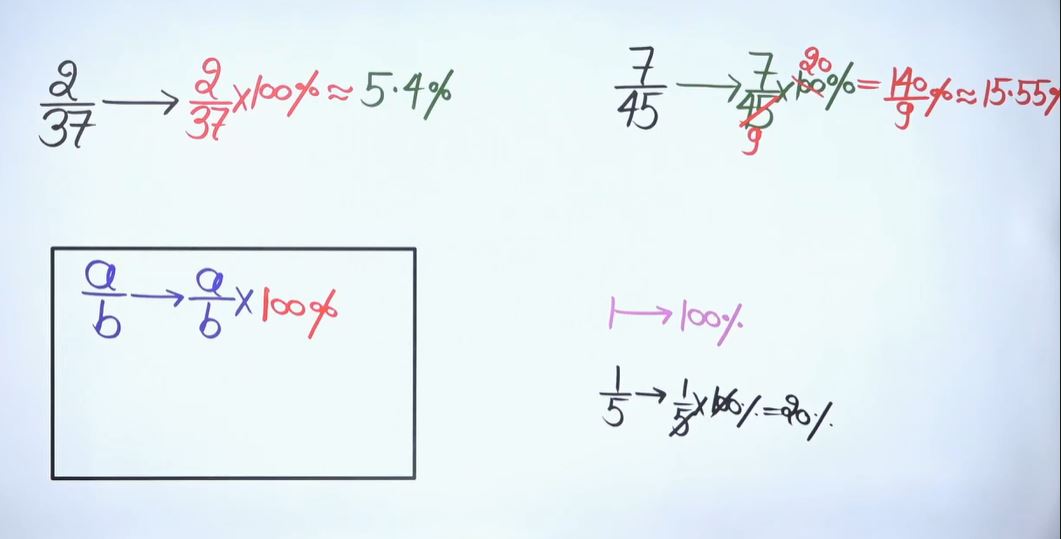 2/37 → 2/37 × 100% ≈ 5.4%
7/45 → 7/45 × 100% = 140/9 % ≈ 15.55%
20
9
a/b → a/b × 100%
1 → 100%
1/5 → 1/5 × 100% = 20%